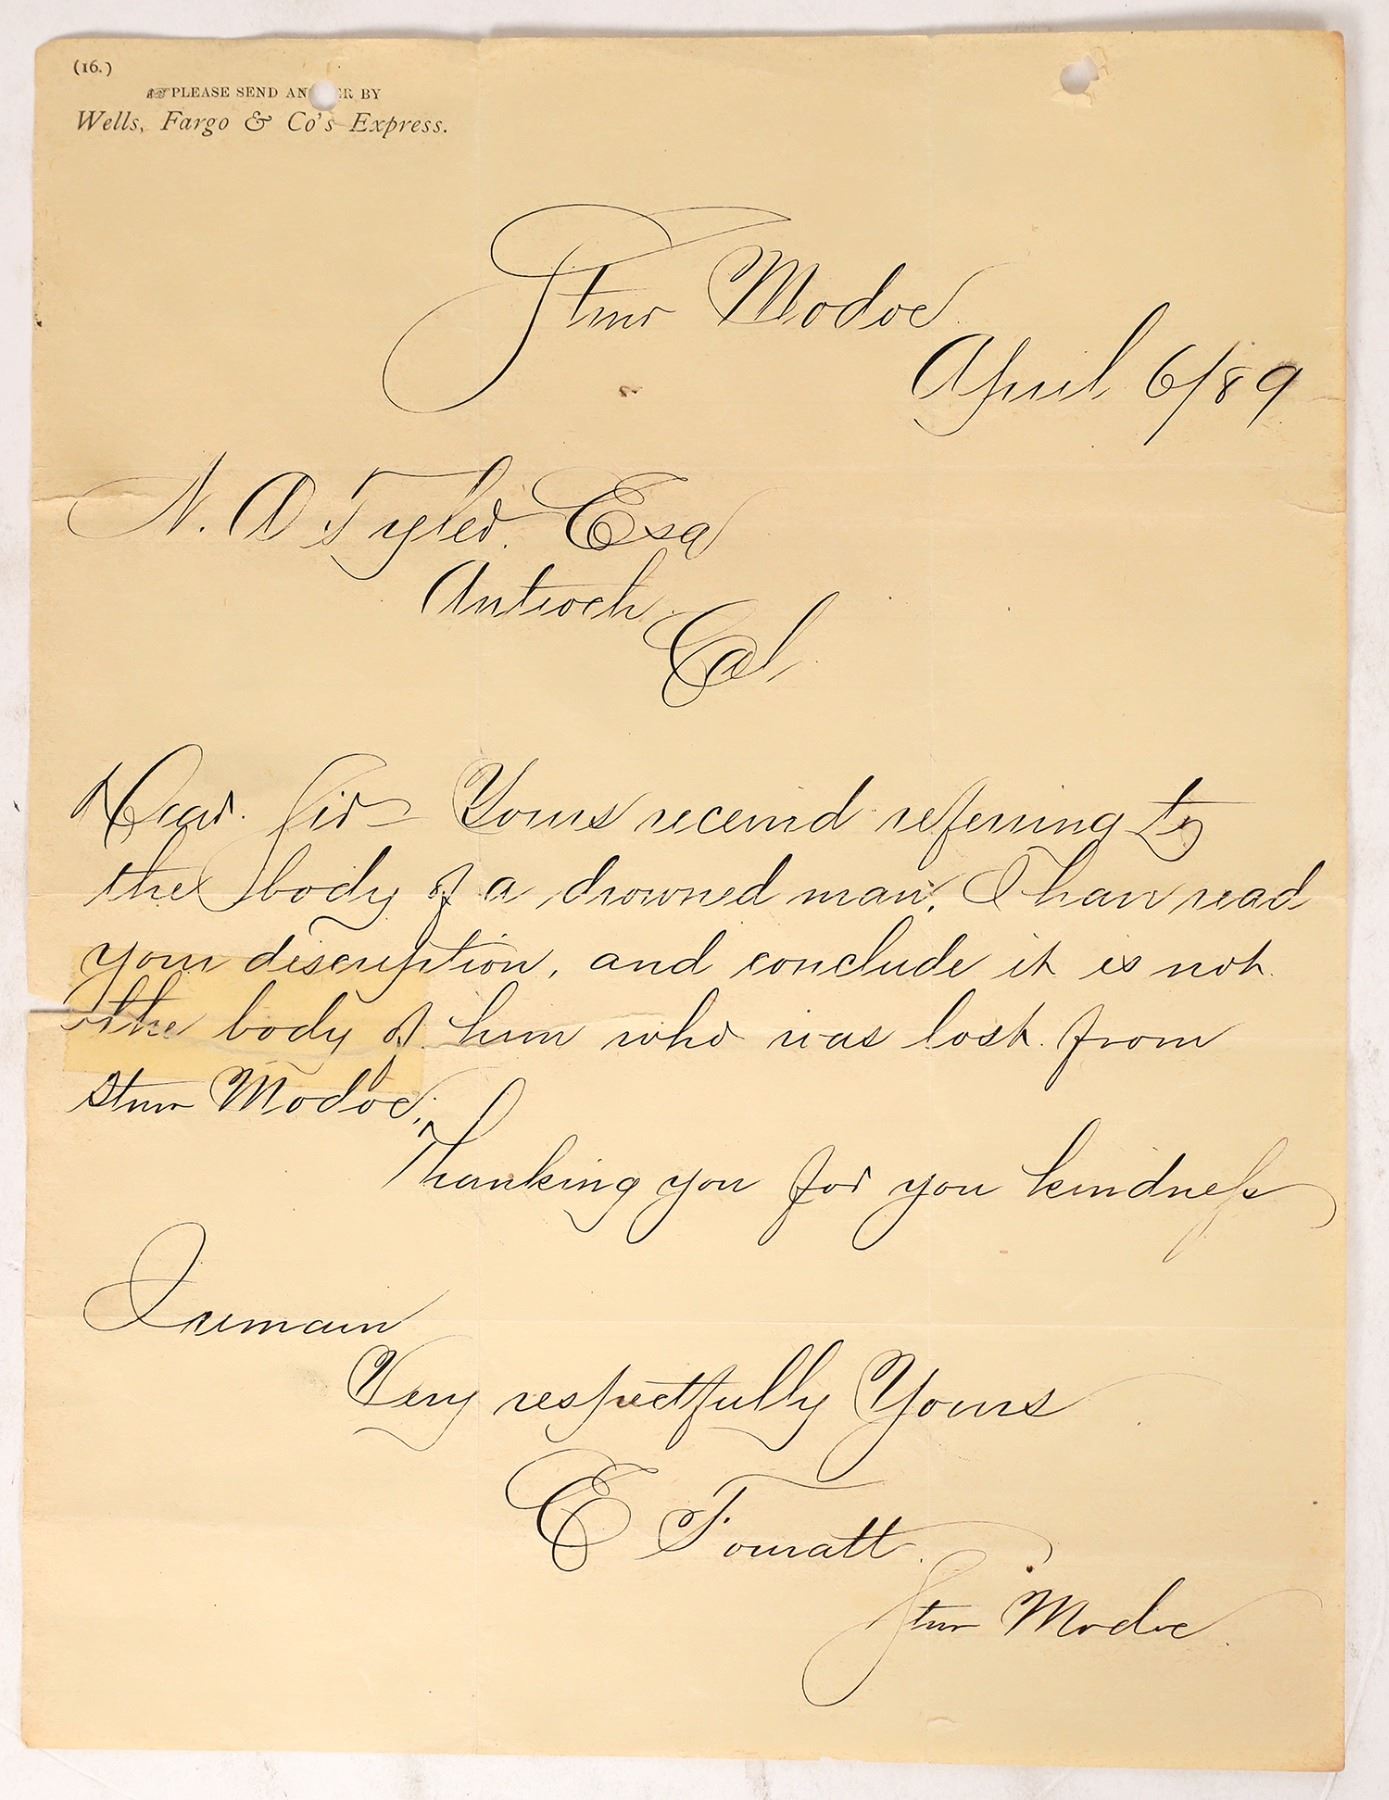 (16.)
☞ PLEASE SEND AN ER BY
Wells, Fargo & Co's Express.
Stmr Modoc
April 6/89
N. A Tyler. Esq
Antioch
Cal,
Dear Sir Yours received referring to
the body of a drowned man. I have read
your discription, and conclude it is not
the body of him who was lost from
Stmr Modoc.
Thanking you for you kindness
I remain
Very respectfully Yours
E Fouratt.
Stmr Modoc